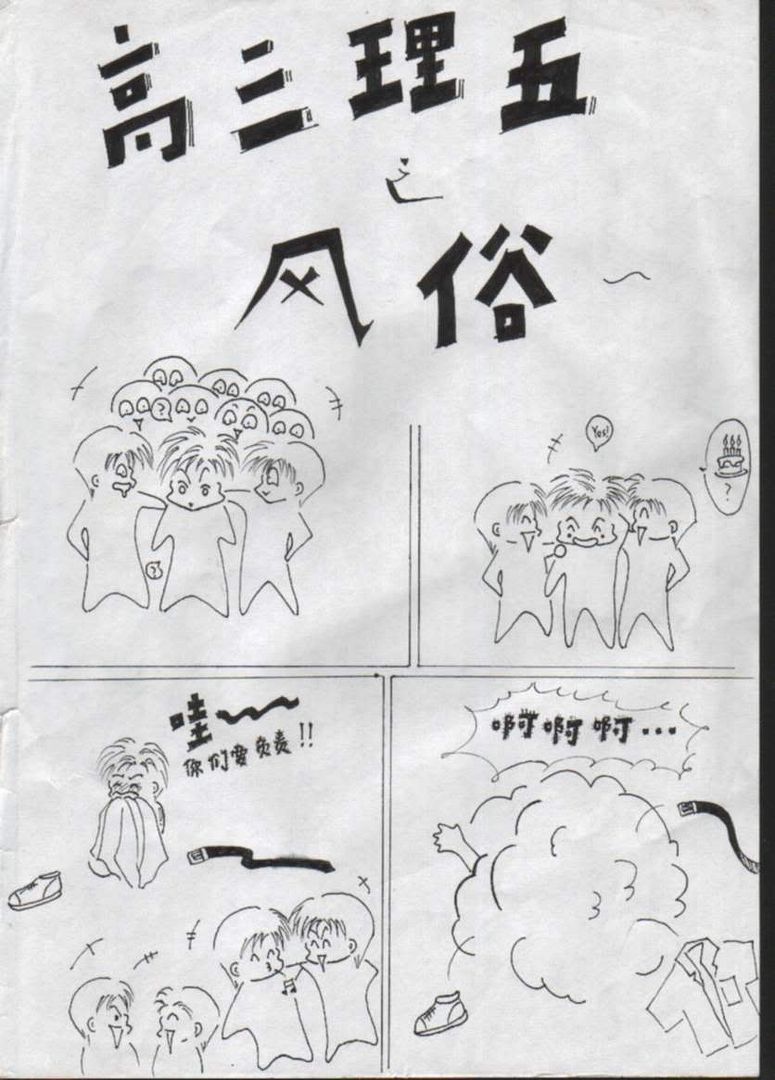 高三理五
之
风俗~
?
?
Yes!
?
哇~
你们要负责!!
啊啊啊...